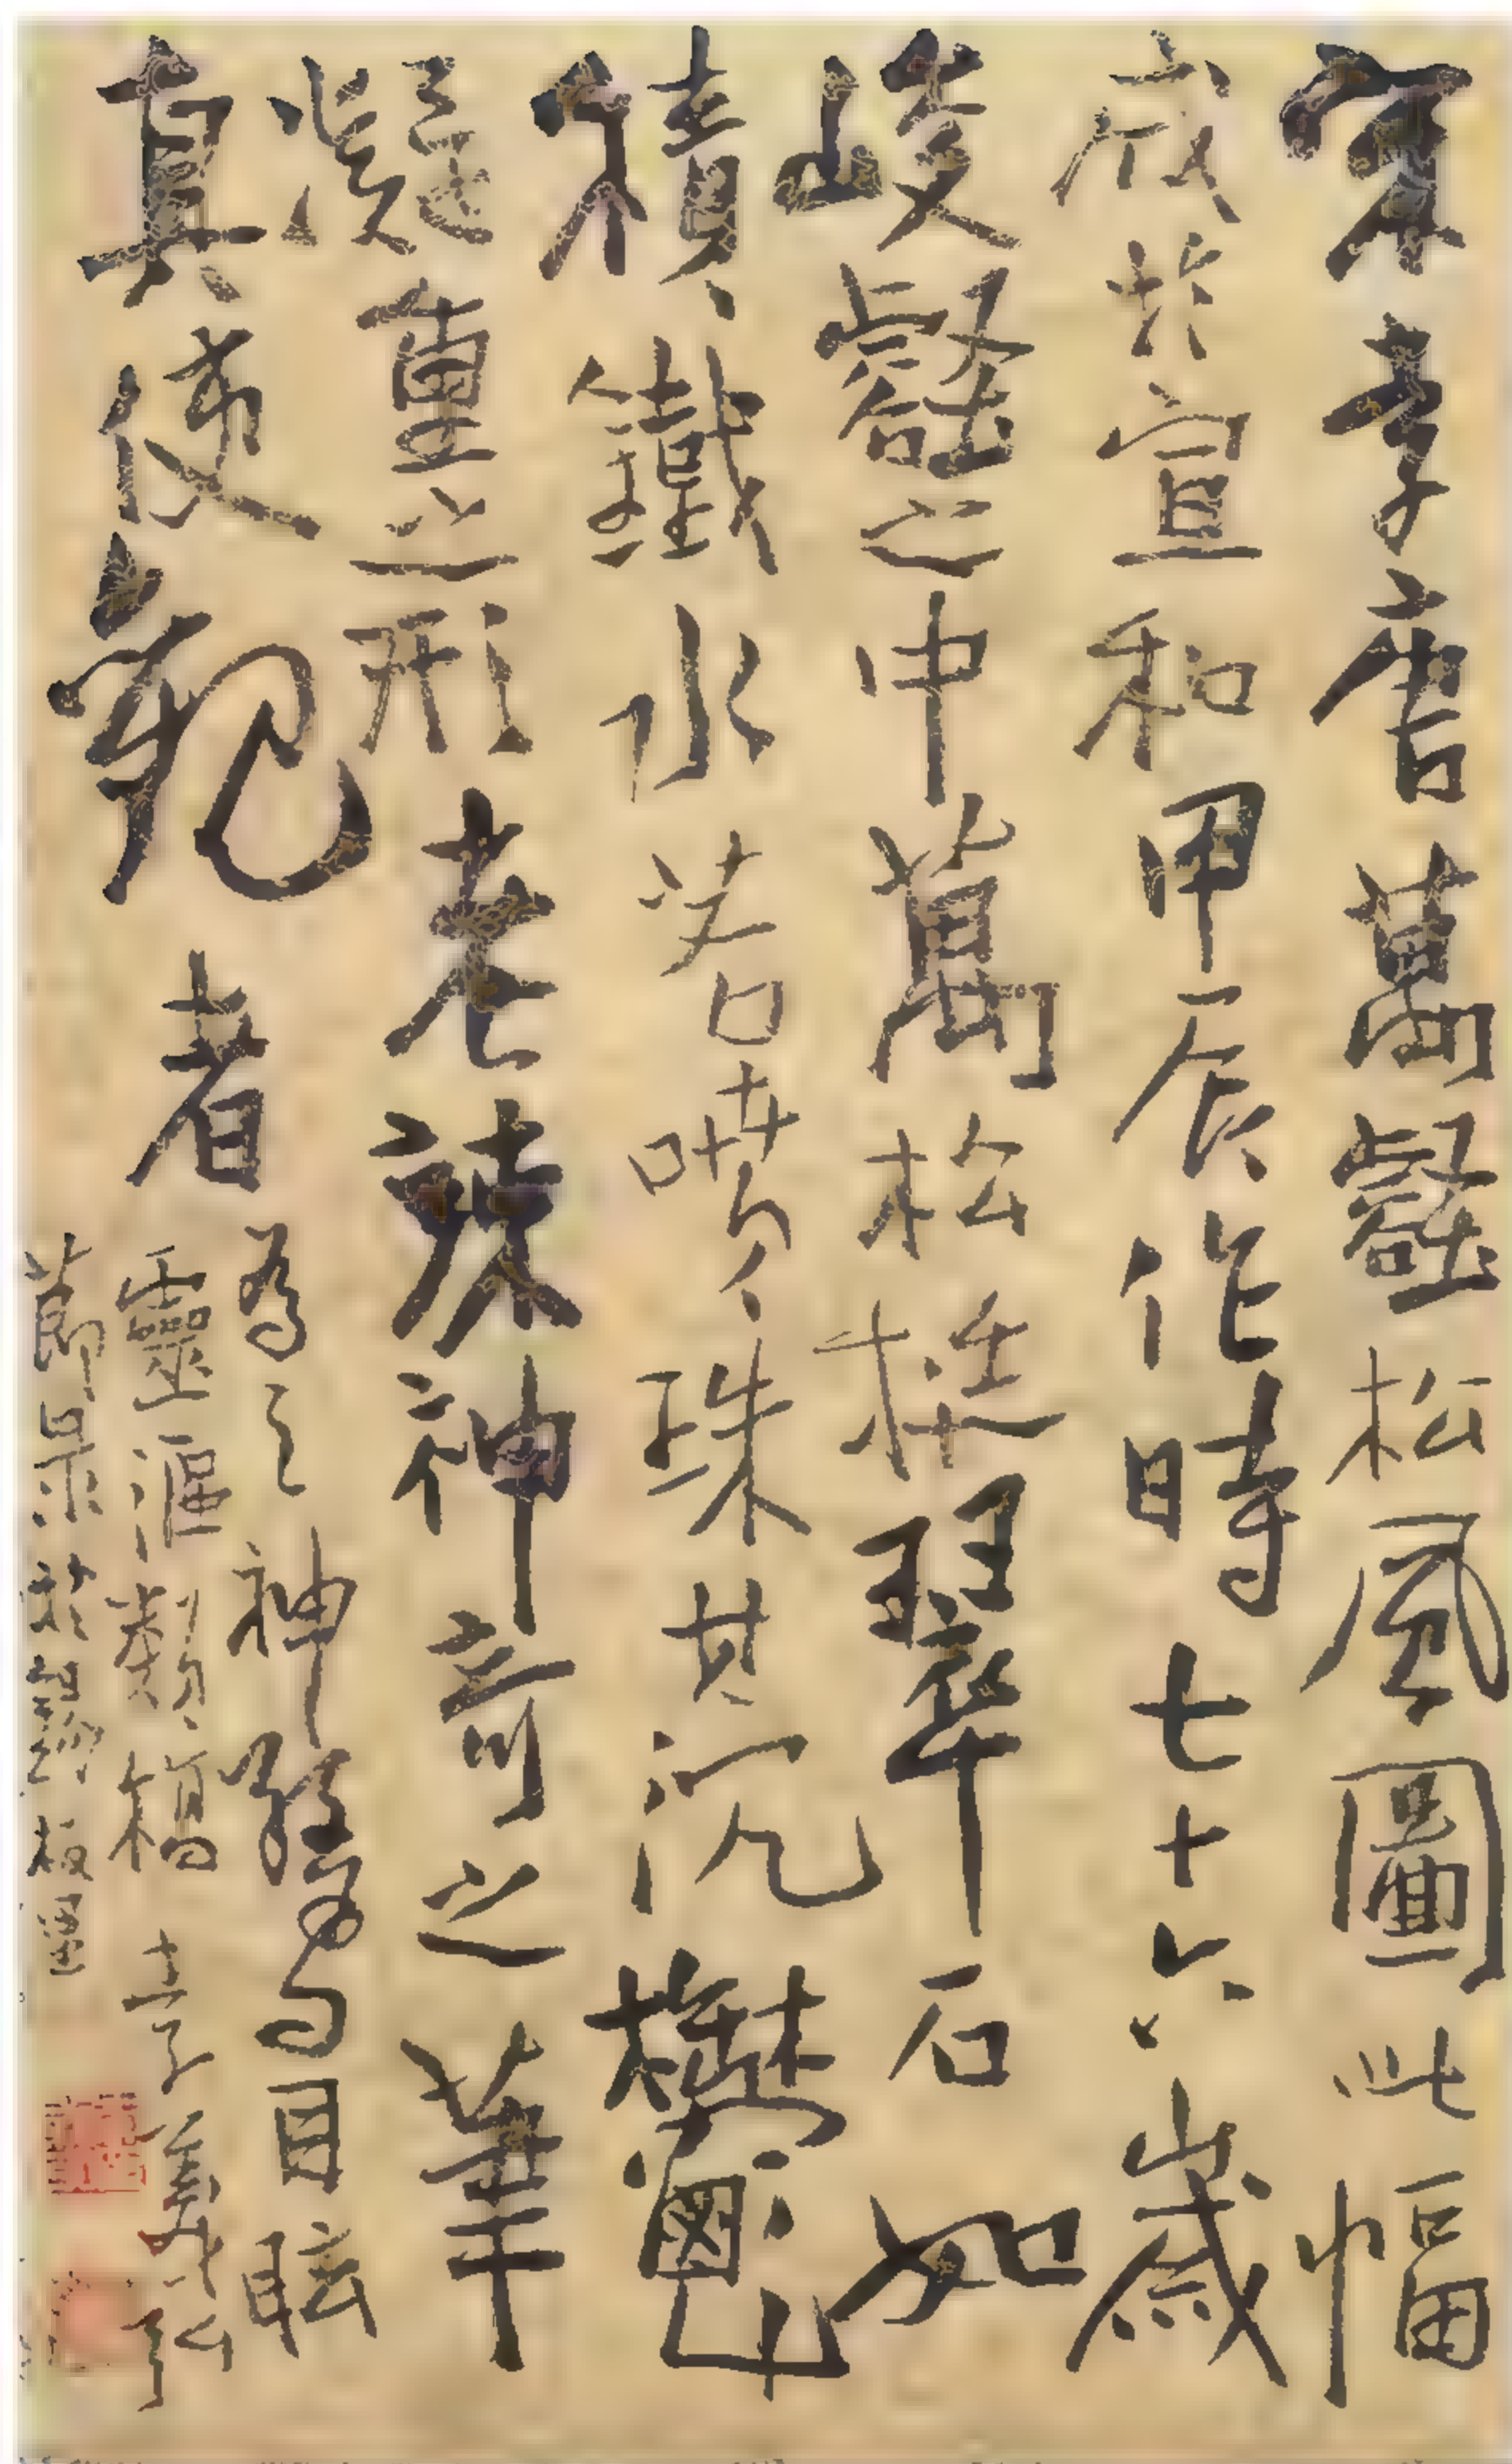 宋李唐萬壑松風圖此幅
成於宣和甲辰作時七十六歲
峻壑之中萬松挺翠石如
積鐵水若噴珠其沉鬱
凝重之形老辣神奇之筆
真使觀者為之神驚目眩